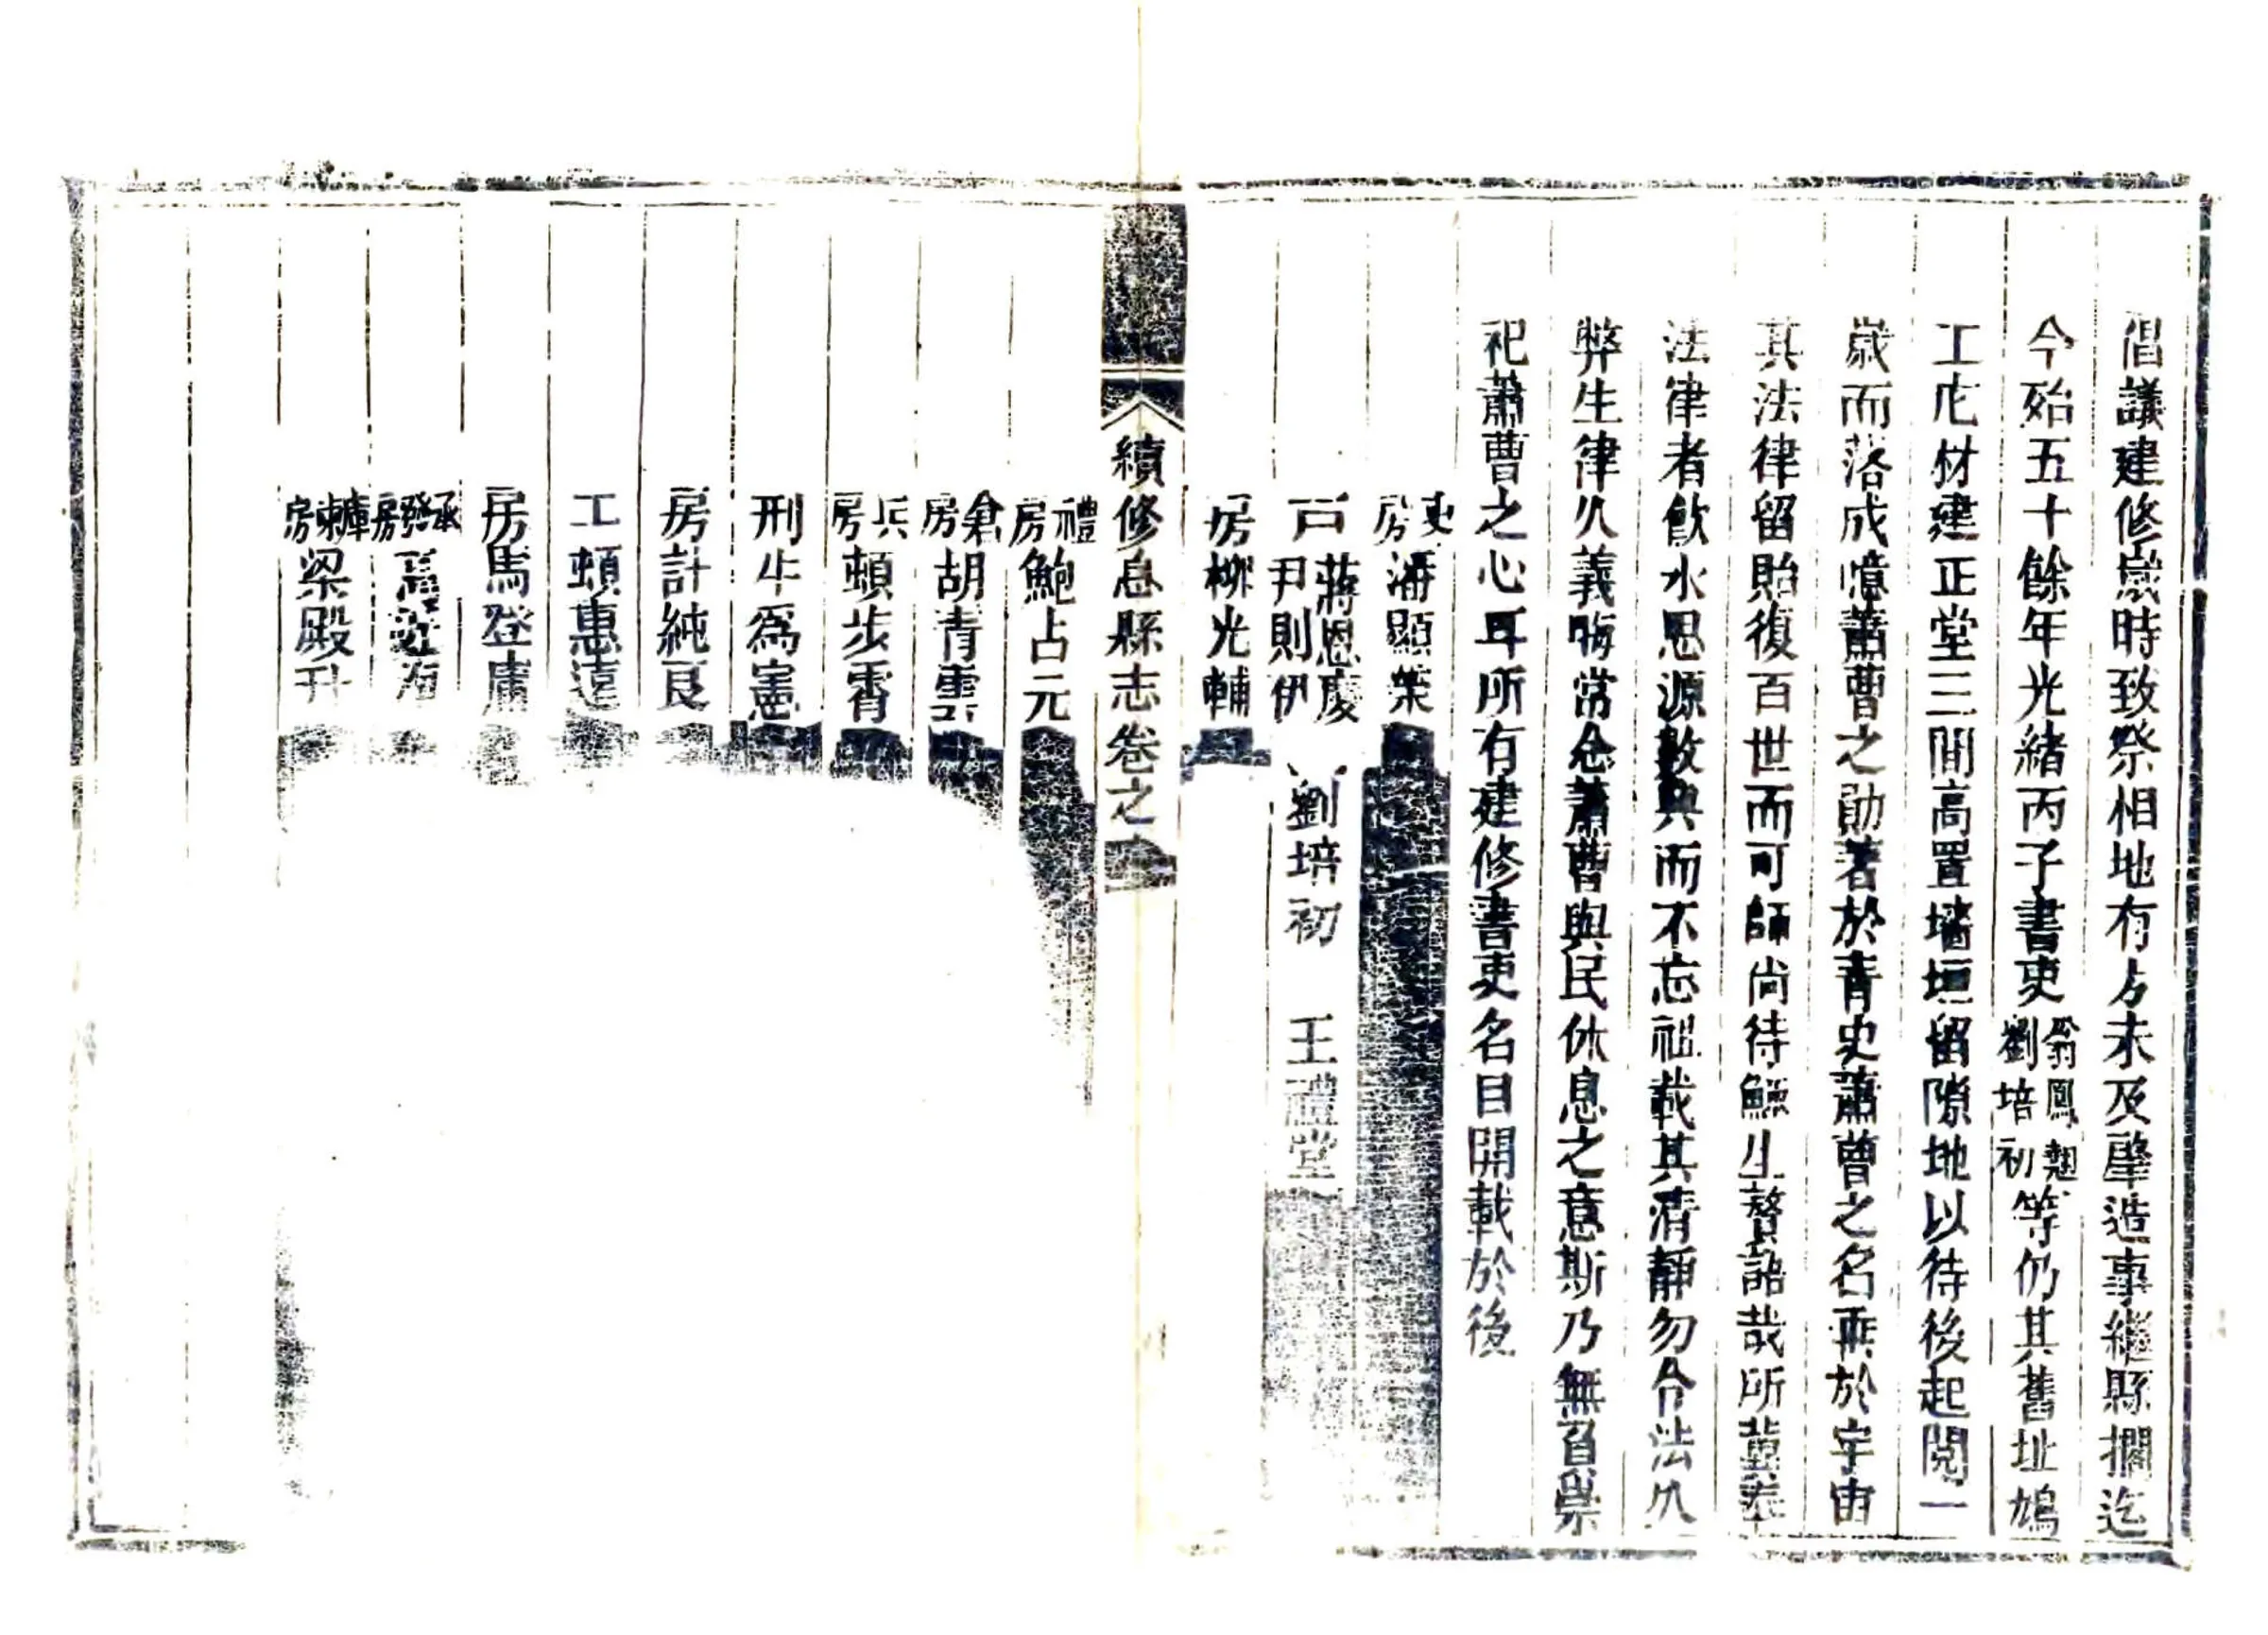 倡議建修嵗時致祭相地有方未及肇造事繼縣擱迄
今殆五十餘年光緒丙子書吏翁鳳翹劉培初等仍其舊址鳩
工庀材建正堂三間高置墻垣留隙地以待後起閲一
嵗而落成憶蕭曹之勛著於青史蕭曹之名垂於宇宙
其法律留貽復百世而可師尚待鯫生贅詣哉所冀奉
法律者飮水思源數典而不忘祖載其清靜勿令法久
弊生律久義晦常念蕭曹與民休息之意斯乃無負崇
祀蕭曹之心耳所有建修書吏名目開載於後
吏房潘顯榮
戸蔣恩慶尹則伊 劉培初 王禮堂
房栁光輔
續修息縣志卷之
禮房鮑占元
倉房胡青雲
兵房頓步霄
刑牛爲憲
房計純良
工頓惠遠
房馬登庸
承發房高
庫東房梁殿升